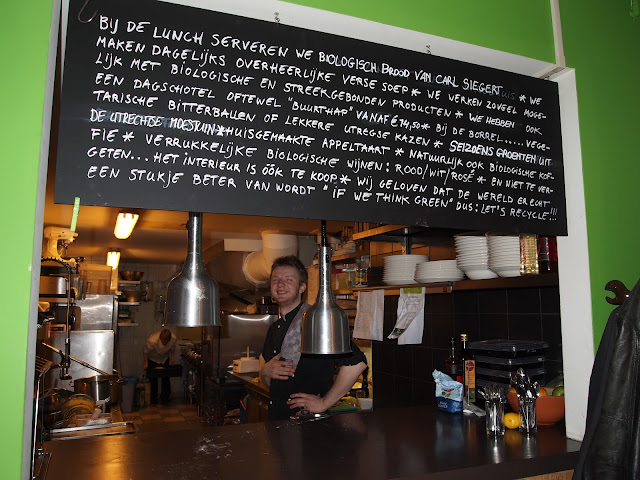 BIJ DE LUNCH SERVEREN WE BIOLOGISCH BROOD VAN CARL SIEGERT * WE
MAKEN DAGELIJKS OVERHEERLIJKE VERSE SOEP * WE WERKEN ZOVEEL MOGE-
LIJK MET BIOLOGISCHE EN STREEKGEBONDEN PRODUCTEN * WE HEBBEN OOK
EEN DAGSCHOTEL OFTEWEL "BUURTHAP" VANAF €14,50 * BIJ DE BORREL..... VEGE-
TARISCHE BITTERBALLEN OF LEKKERE UTREGSE KAZEN * SEIZOENS GROENTEN UIT
DE UTRECHTSE MOESTUIN * HUISGEMAAKTE APPELTAART * NATUURLIJK OOK BIOLOGISCHE KOF-
FIE * VERRUKKELIJKE BIOLOGISCHE WIJNEN: ROOD/WIT/ROSÉ * EN NIET TE VER-
GETEN... HET INTERIEUR IS ÓÓK TE KOOP * WIJ GELOVEN DAT DE WERELD ER ECHT
EEN STUKJE BETER VAN WORDT "IF WE THINK GREEN" DUS: LET'S RECYCLE!!!